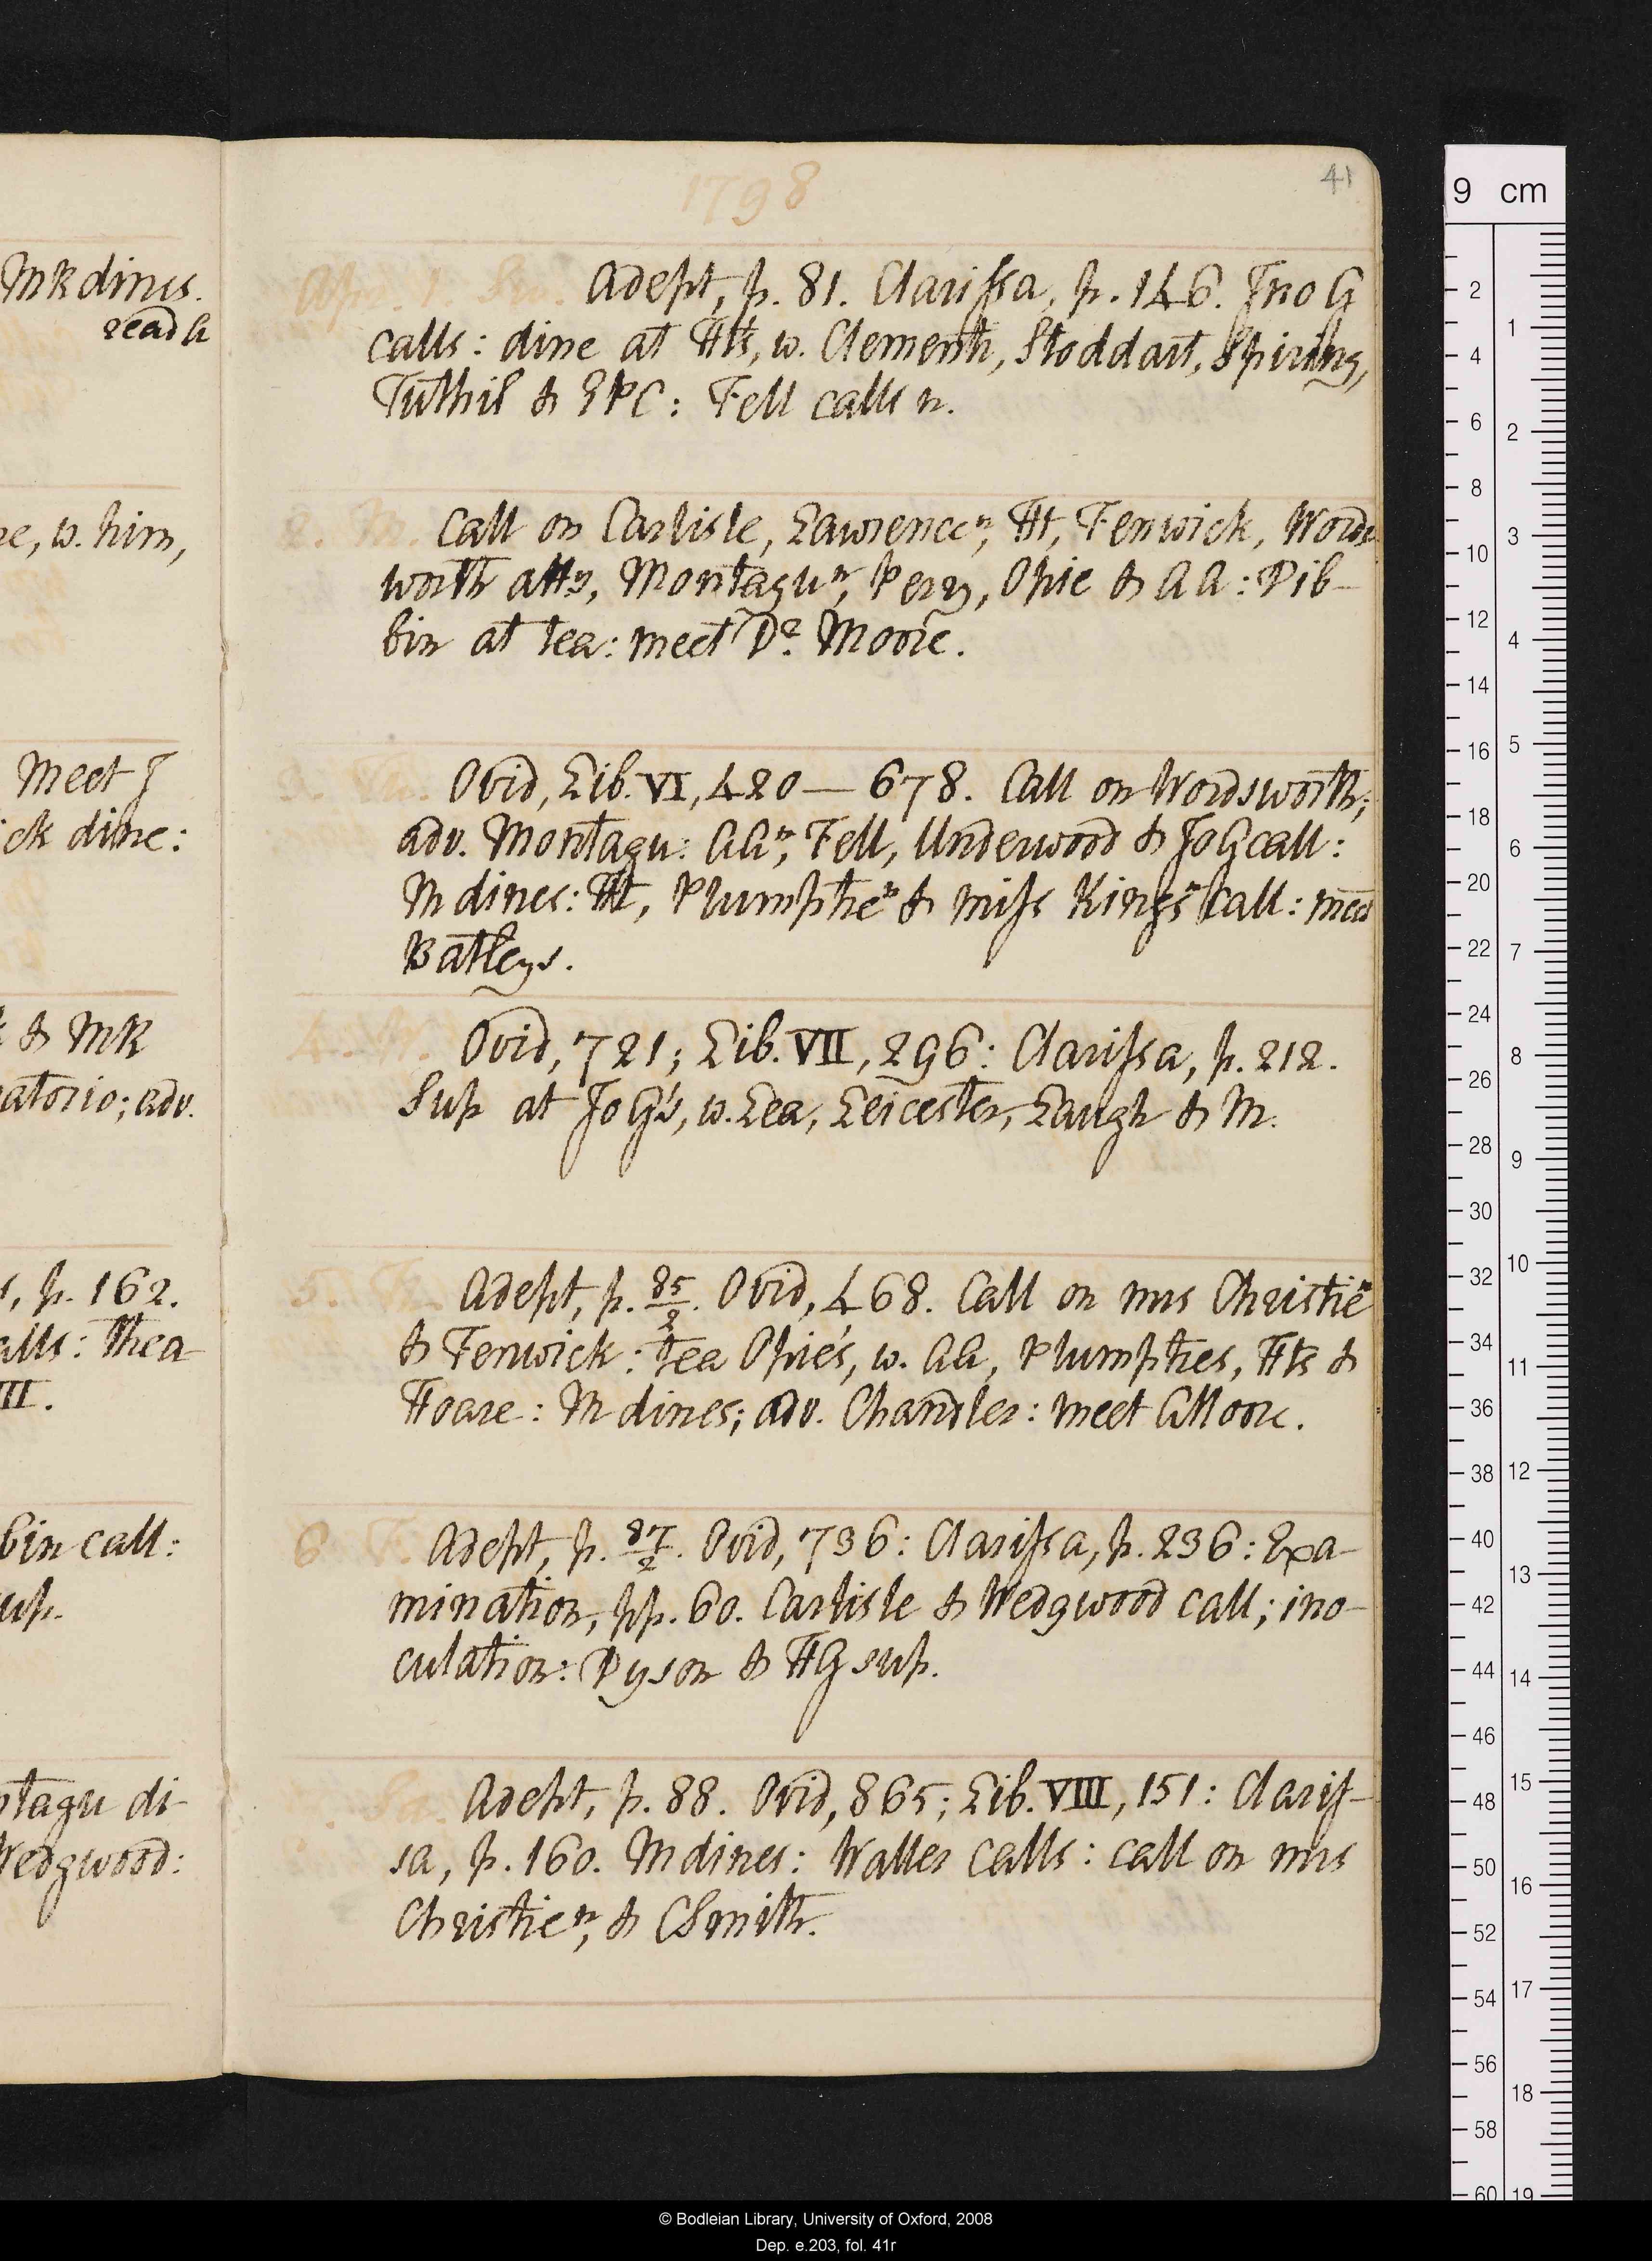 1798
41
MR dines.
read G
e, w. him,
Meet J
ck dine:
& MR
atorio; adv.
, p. 162.
alls: Thea-
III.
bin call:
up.
ntagu di-
Wedgwood:
Apr. 1. Su. Adept, p. 81. Clarissa, p. 146. Jno G
calls: dine at Ht's, w. Clementi, Stoddart, Spiring,
Tuthil & EPC: Fell calls n.
2. M. Call on Carlisle, Lawrence n, Ht, Fenwick, Words
worth, Montagu n, Perry, Opie & AA: Dib-
bin at tea: meet Dr. Moore.
3. Tu. Ovid, Lib. VI, 420—678. Call on Wordsworth;
adv. Montagu: AA n, Fell, Underwood & Jo G call:
M dines: Ht, Plumptre n & miss Kings n call: meet
Batleys.
4. W. Ovid, 721; Lib. VII, 296: Clarissa, p. 212.
Sup at Jo G's, w. Lea, Leicester, Laugh & M.
5. Th. Adept, p. 85/2. Ovid, 468. Call on mrs Christie n
& Fenwick: tea Opie's, w. AA, Plumptres, Hts &
Hoare: M dines; adv. Chandler: meet GMoore.
6. F. Adept, p. 87/2. Ovid, 736: Clarissa, p. 236: Exa-
mination, pp. 60. Carlisle & Wedgwood call; ino-
culation: Dyson & HG sup.
Sa. Adept, p. 88. Ovid, 865; Lib. VIII, 151: Claris-
sa, p. 160. M dines: Waller calls: call on mrs
Christie n, & CSmith.
9 cm
© Bodleian Library, University of Oxford, 2008
Dep. e.203, fol. 41r